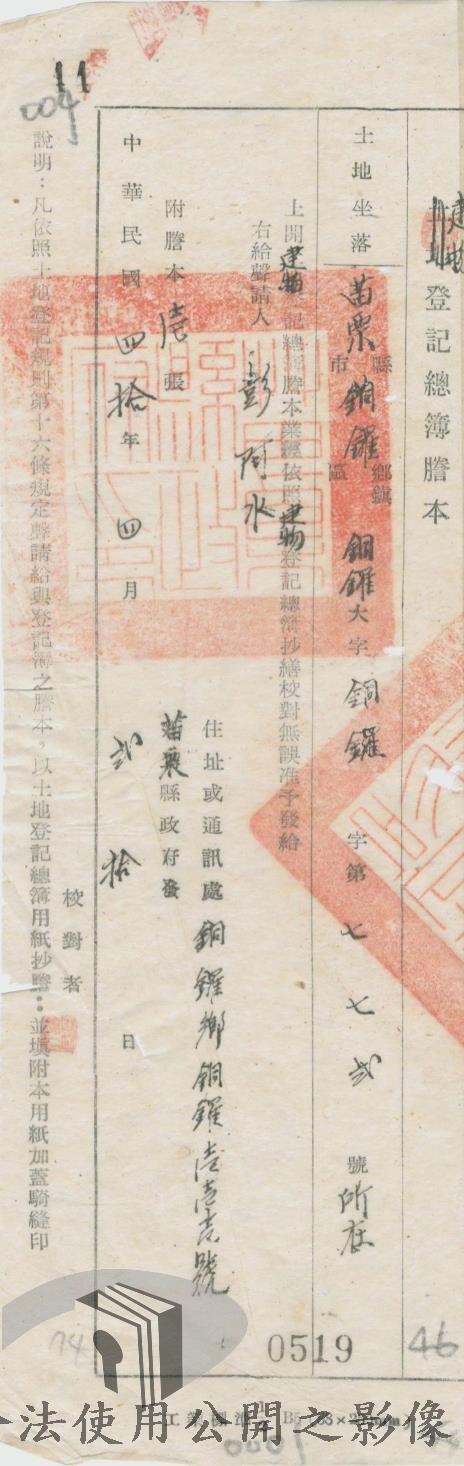 建物登記總簿謄本
土地坐落 苗栗縣市銅鑼鄉鎮區銅鑼大字銅鑼字第七七弍號所在
上開建物登記總簿謄本業經依照建物登記總簿抄繕校對無誤准予發給
右給聲請人 彭阿水
住址或通訊處 銅鑼鄉銅鑼壹壹壹號
苗栗縣政府發
附謄本 張
中華民國四拾年四月弍拾日
校對者
說明：凡依照土地登記規則第十六條規定聲請給與登記簿之謄本，以土地登記總簿用紙抄謄：並填附本用紙加蓋騎縫印
11
004
0519
46
74
法使用公開之影像